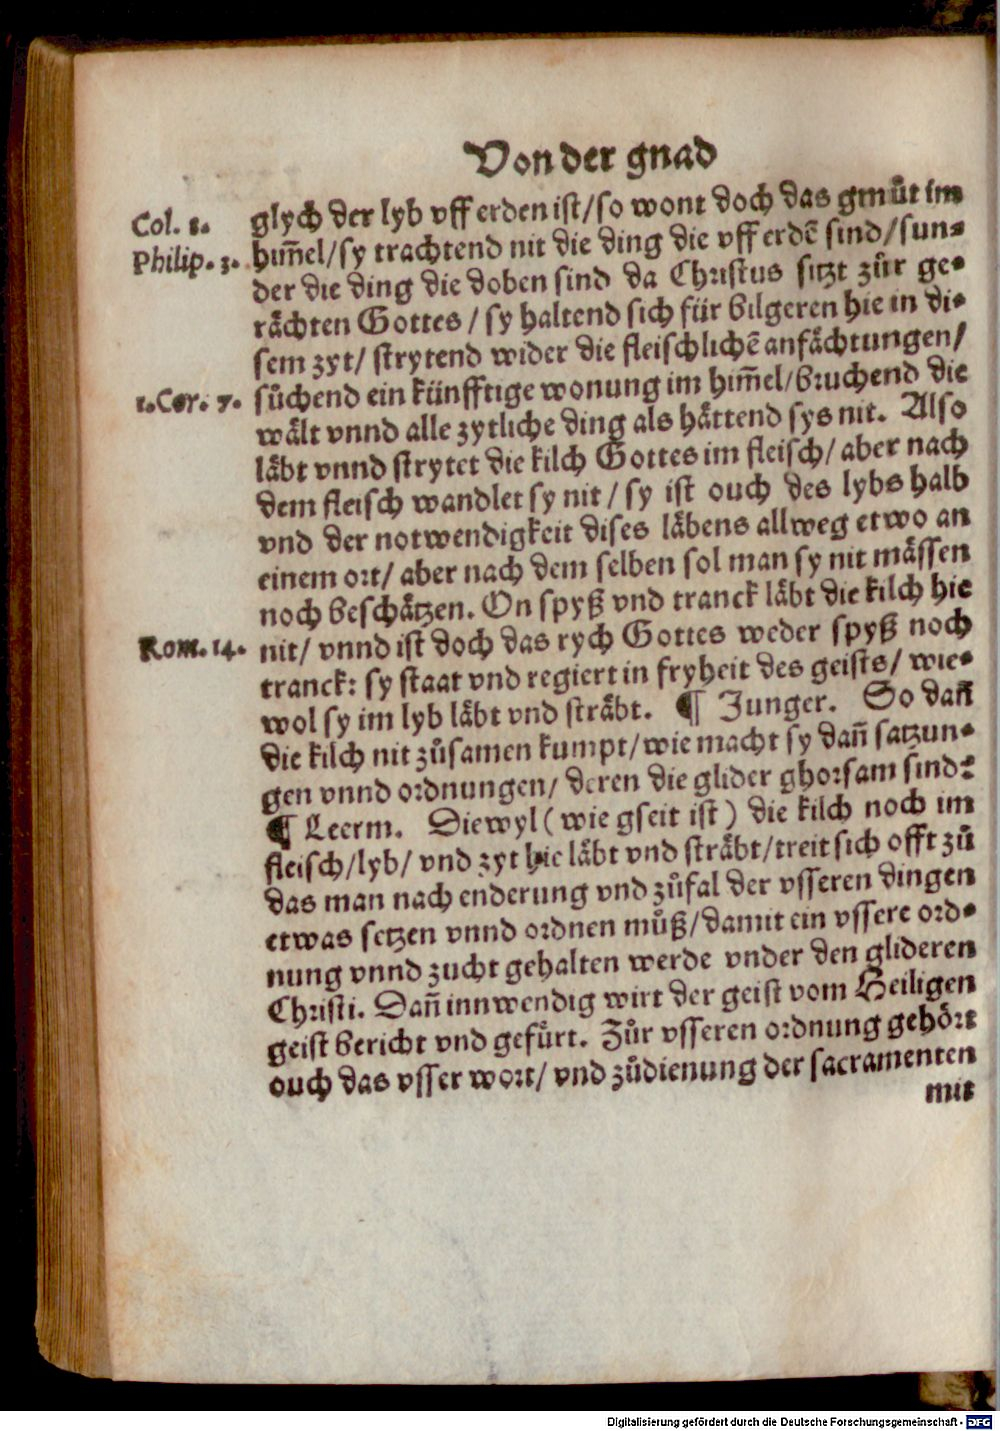 Von der gnad
Col. 3. glych der lyb vff erden ist/so wont doch das gmuͤt im
Philip. 3. him̃el/sy trachtend nit die ding die vff erdẽ sind/sun-
der die ding die doben sind da Christus sitzt zuͦr ge-
raͤchten Gottes / sy haltend sich für bilgeren hie in di-
sem zyt/ strytend wider die fleischlichẽ anfaͤchtungen/
1.Cor. 7. suͦchend ein künfftige wonung im him̃el/bruchend die
waͤlt vnnd alle zytliche ding als haͤttend sys nit. Also
laͤbt vnnd strytet die kilch Gottes im fleisch/ aber nach
dem fleisch wandlet sy nit / sy ist ouch des lybs halb
vnd der notwendigkeit dises laͤbens allweg etwo an
einem ort/ aber nach dem selben sol man sy nit maͤssen
noch beschaͤtzen. On spyß vnd tranck laͤbt die kilch hie
Rom. 14. nit/ vnnd ist doch das rych Gottes weder spyß noch
tranck: sy staat vnd regiert in fryheit des geists/ wie-
wol sy im lyb laͤbt vnd straͤbt. ¶ Junger. So dañ
die kilch nit zuͦsamen kumpt/wie macht sy dañ satzun-
gen vnnd ordnungen/ deren die glider ghorsam sind?
¶ Leerm. Diewyl (wie gseit ist) die kilch noch im
fleisch/lyb/ vnd zyt hie laͤbt vnd straͤbt/treit sich offt zuͦ
das man nach enderung vnd zuͦfal der vsseren dingen
etwas setzen vnnd ordnen muͦß/damit ein vssere ord-
nung vnnd zucht gehalten werde vnder den glideren
Christi. Dañ innwendig wirt der geist vom Heiligen
geist bericht vnd gefuͤrt. Zuͦr vsseren ordnung gehoͤrt
ouch das vsser wort/ vnd zuͦdienung der sacramenten
mit
Digitalisierung gefördert durch die Deutsche Forschungsgemeinschaft - DFG